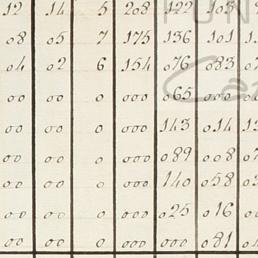 12 14 5 208 122 103
08 05 7 175 136 101
04 02 6 154 076 083
00 00 0 000 065 000
00 00 0 000 143 014
00 00 0 000 089 008
00 00 0 000 140 058
00 00 0 000 025 016
00 00 0 000 000 081